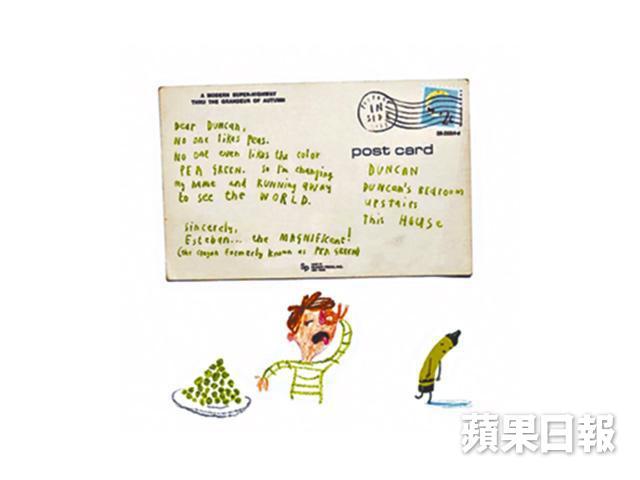 A MODERN SUPER-HIGHWAY
THRU THE GRANDEUR OF AUTUMN
Dear Duncan,
No one likes Peas.
No one even likes the color
PEA GREEN. So I'm changing
my name and Running away
to see the WORLD.
Sincerely,
Esteban... the MAGNIFICENT!
(the crayon formerly known as PEA GREEN)
post card
DUNCAN
DUNCAN'S BEDROOM
UPSTAIRS
This HOUSE
蘋果日報